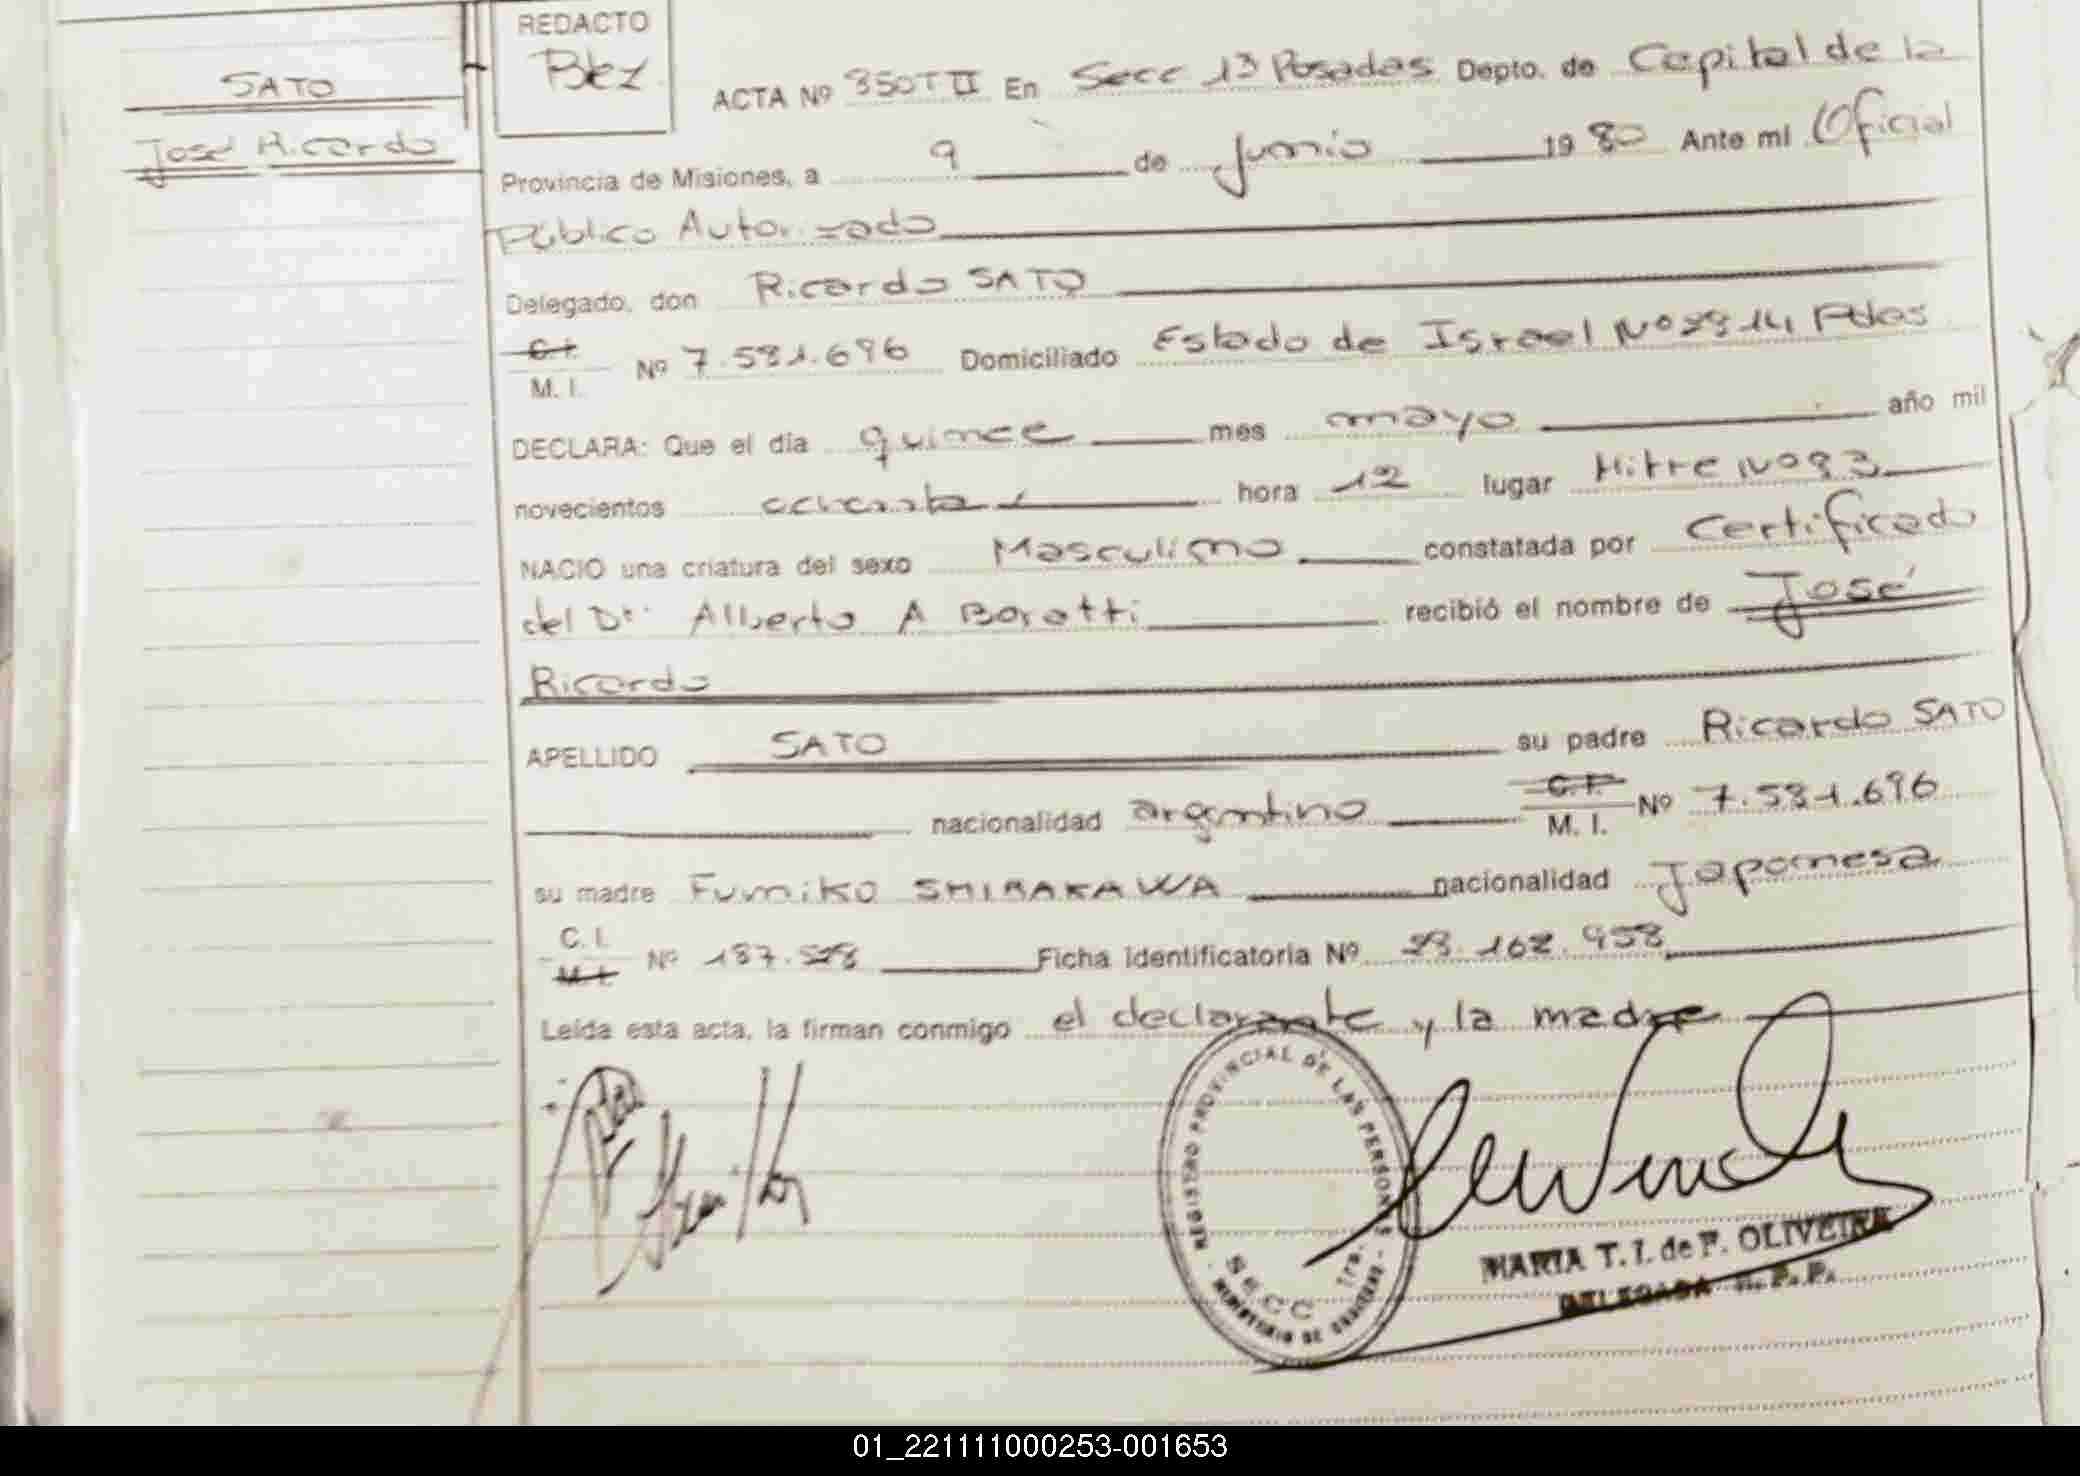 REDACTO
SATO
José Ricardo
ACTA Nº 350 T II En Secc 1ª Posadas Depto. de Capital de la
Provincia de Misiones, a 9 de Junio 1980 Ante mi Oficial
Público Autorizado
Delegado, don Ricardo SATO
C. I.
M. I. Nº 7.581.696 Domiciliado Estado de Israel Nº Pdas
DECLARA: Que el día quince mes mayo año mil
novecientos ochenta hora 12 lugar Mitre Nº
NACIO una criatura del sexo Masculino constatada por Certificado
del Dr. Alberto A Boratti recibió el nombre de José
Ricardo
APELLIDO SATO su padre Ricardo SATO
nacionalidad argentino C. I. M. I. Nº 7.581.696
su madre Fumiko SHIRAKAWA nacionalidad Japonesa
C. I.
M. I. Nº Ficha Identificatoria Nº 28.162.958
Leída esta acta, la firman conmigo el declarante y la madre
REGISTRO PROVINCIAL DE LAS PERSONAS
SECC 1ra.
MINISTERIO DE GOBIERNO
MARIA T. I. de F. OLIVEIRA
DELEGADA R. P. P.
01_221111000253-001653